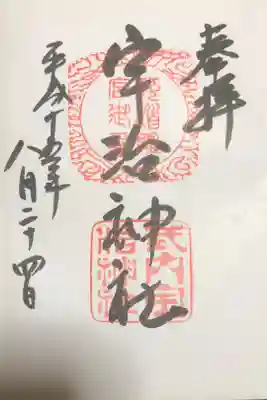 奉拝
宇治神社
平成十五年
八月二十四日